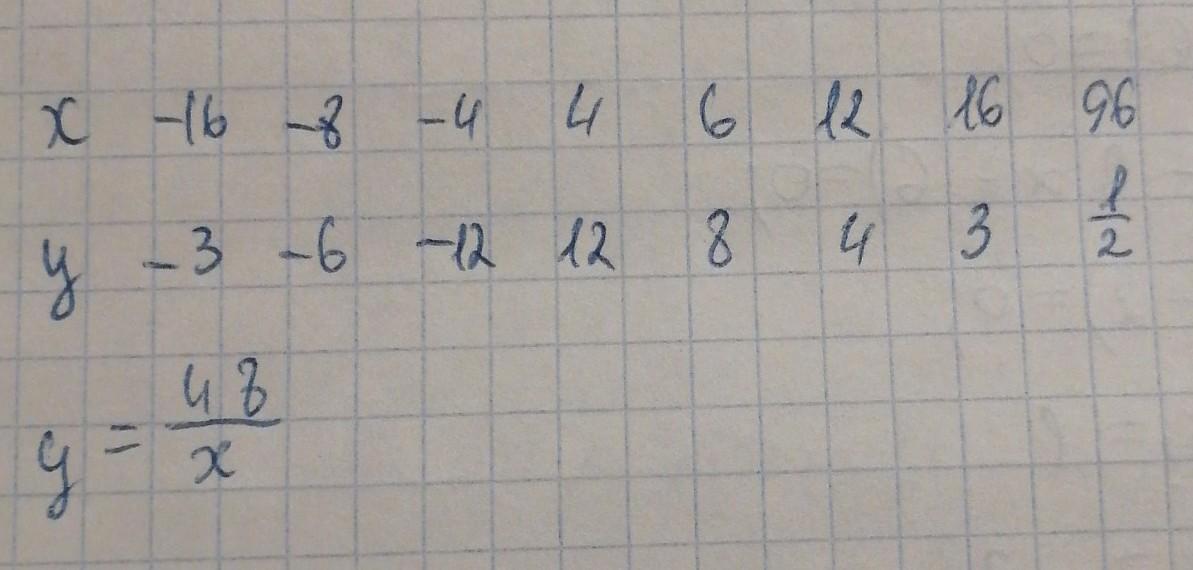 x -16 -8 -4 4 6 12 16 96
y -3 -6 -12 12 8 4 3 1/2
y = 48/x